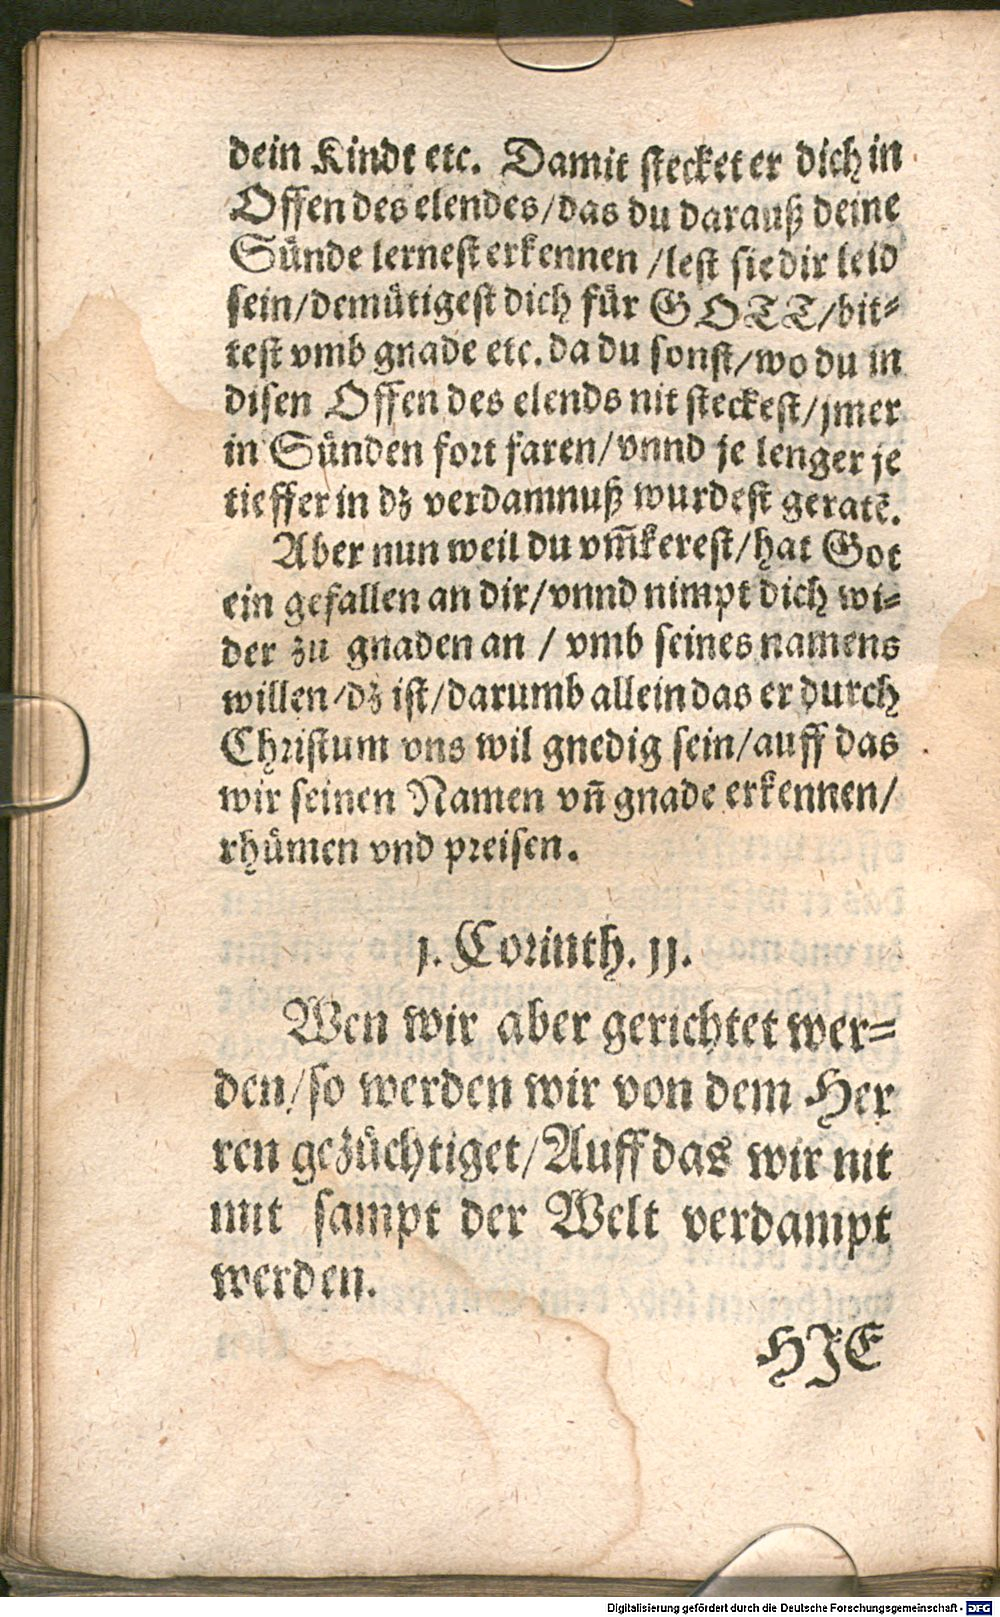 dein Kindt etc. Damit stecket er dich in
Offen des elendes/das du darauß deine
Sünde lernest erkennen /lest sie dir leid
sein/demütigest dich für GOTT/bit⸗
test vmb gnade etc. da du sonst/wo du in
disen Offen des elends nit steckest/jmer
in Sünden fort faren/vnnd je lenger je
tieffer in dz verdamnuß wurdest geratē.
Aber nun weil du vm̄kerest/hat Got
ein gefallen an dir/vnnd nimpt dich wi⸗
der zu gnaden an / vmb seines namens
willen/dz ist/darumb allein das er durch
Christum vns wil gnedig sein/auff das
wir seinen Namen vn̄ gnade erkennen/
rhümen vnd preisen.
j. Corinth. jj.
Wen wir aber gerichtet wer⸗
den/so werden wir von dem Her
ren gezüchtiget/Auff das wir nit
mit sampt der Welt verdampt
werden.
HJE
Digitalisierung gefördert durch die Deutsche Forschungsgemeinschaft - DFG